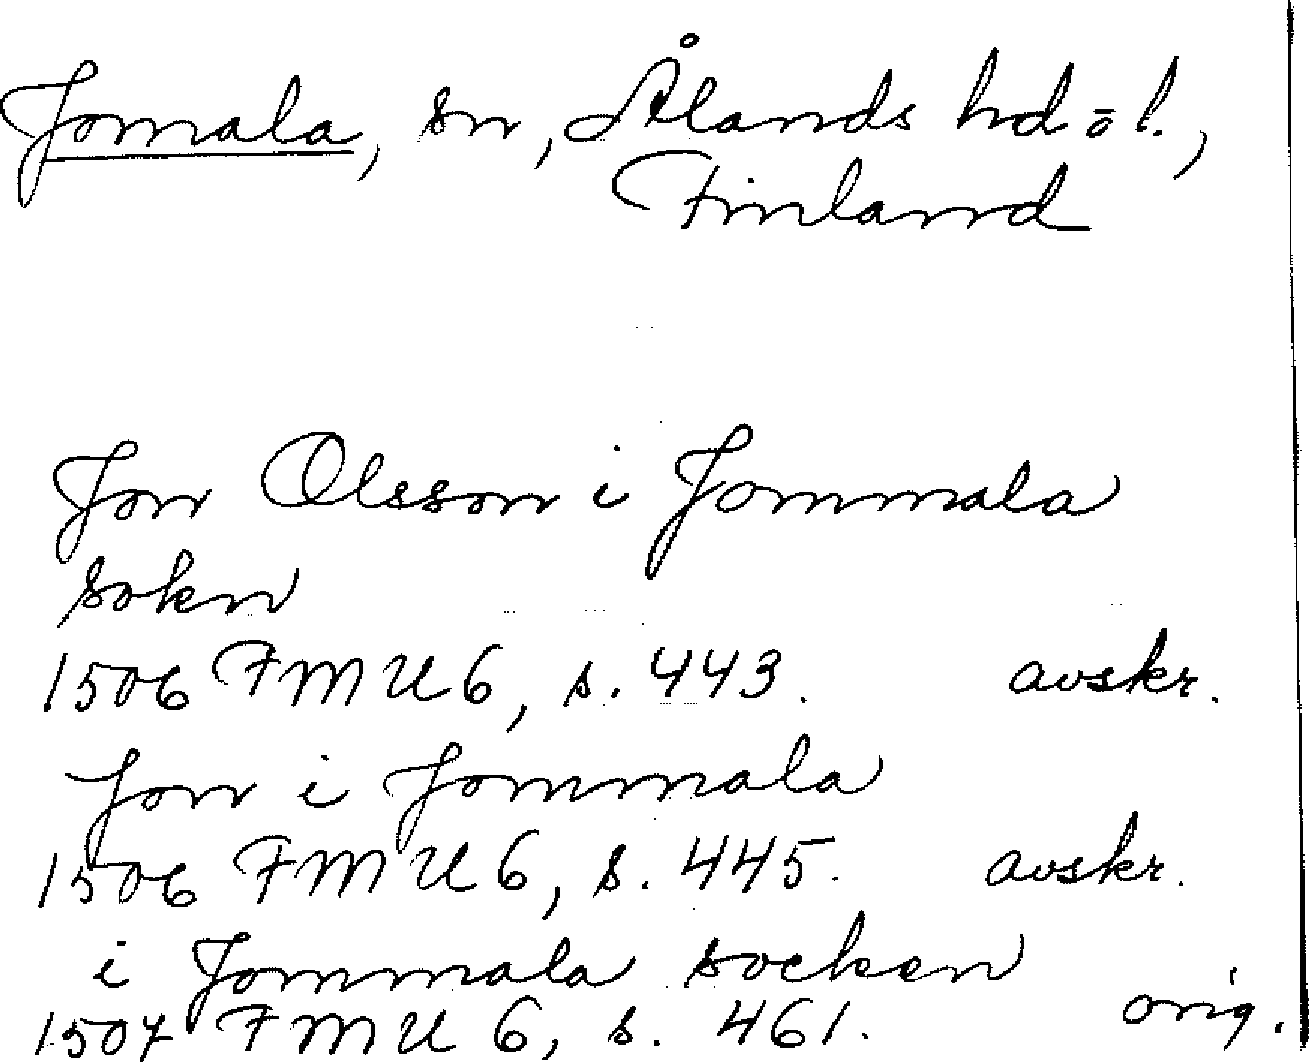 Jomala, sn, Ålands hd o l.,
Finland
Jon Olsson i Jommala
sokn
1506 FMU 6, s. 443. avskr.
Jon i Jommala
1506 FMU 6, s. 445. avskr.
i Jommala socken
1507 FMU 6, s. 461. orig.